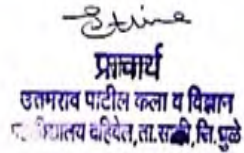 प्राचार्य
उत्तमराव पाटील कला व विज्ञान
महाविद्यालय दहिवेल, ता.साक्री, जि.धुळे